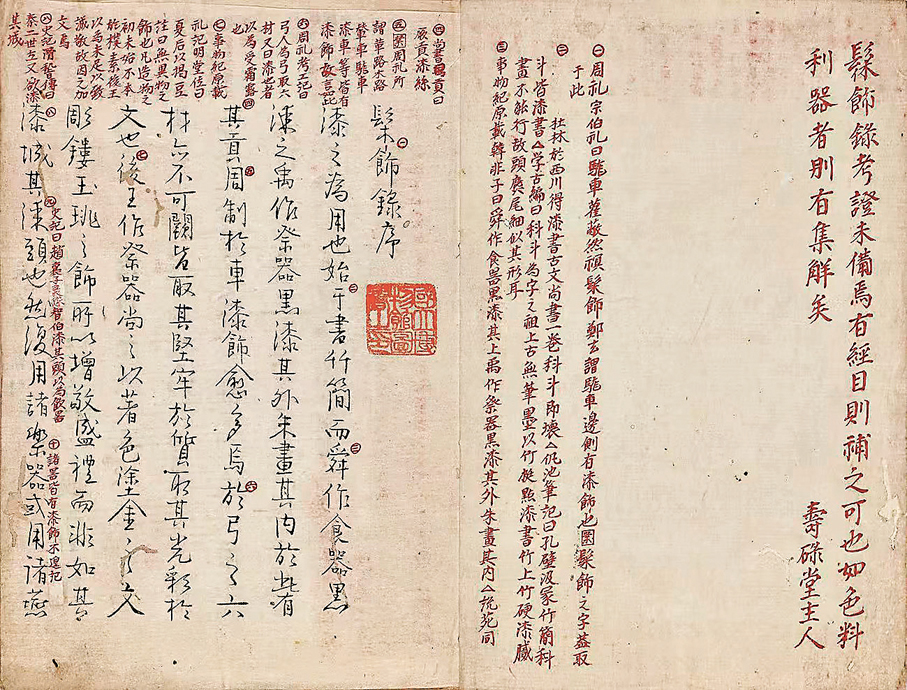 髹飾錄考證未備焉有經目則補之可也如色料
利器者別有集解矣
壽碌堂主人
㊀周礼宗伯礼曰駹車雚蔽然䄙髹飾鄭玄謂駹車邊側有漆飾也圈髹飾之字蓋取
于此
㊁杜林於西川得漆書古文尚書一卷科斗即壞△仇池筆記曰孔壁汲冢竹簡科
斗皆漆書△学古編曰科斗為字之祖上古無筆墨以竹梃點漆書竹上竹硬漆膩
畫不能行故頭麁尾細似其形耳
㊂事物紀原載韓非子曰舜作食器黒漆其上禹作祭器黒漆其外朱畫其內△説苑同
㊃尚書禹貢曰
厥貢漆絲
㊄圈周礼所
謂革路木路
漆車駹車
漆車等皆有
漆飾故言此
㊅周礼考工記曰
弓人為弓取六
材又曰漆也者
以為受霜露
也
㊆事物紀原載
礼記明堂位曰
夏后以揭豆
註曰無異物之
飾也凡造物之
初未始不本
於撲素後王
以為未足以致
誠敬故因之加
文焉
㊇史記滑稽傳曰
秦二世立又欲漆
其城
髹飾錄序
漆之為用也始于書竹簡而舜作食器黒
漆之禹作祭器黒漆其外朱畫其内於此有
其貢周制於車漆飾愈多焉於弓之六
材亦不可闕皆取其堅牢於質取其光彩於
文也後王作祭器尚之以著色塗金之文
彫鏤玉珧之飾所以增敬盛禮而非如其
漆城其漆頭也然後用諸樂器或用諸燕
㊈史記曰趙襄子怨智伯漆其頭以為飲器
㊉諸器皆有漆飾不遑記